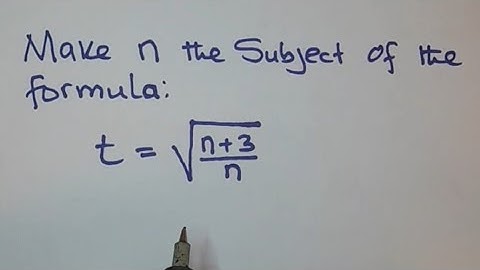 Make n the Subject of the
formula:
t = √((n+3)/n)